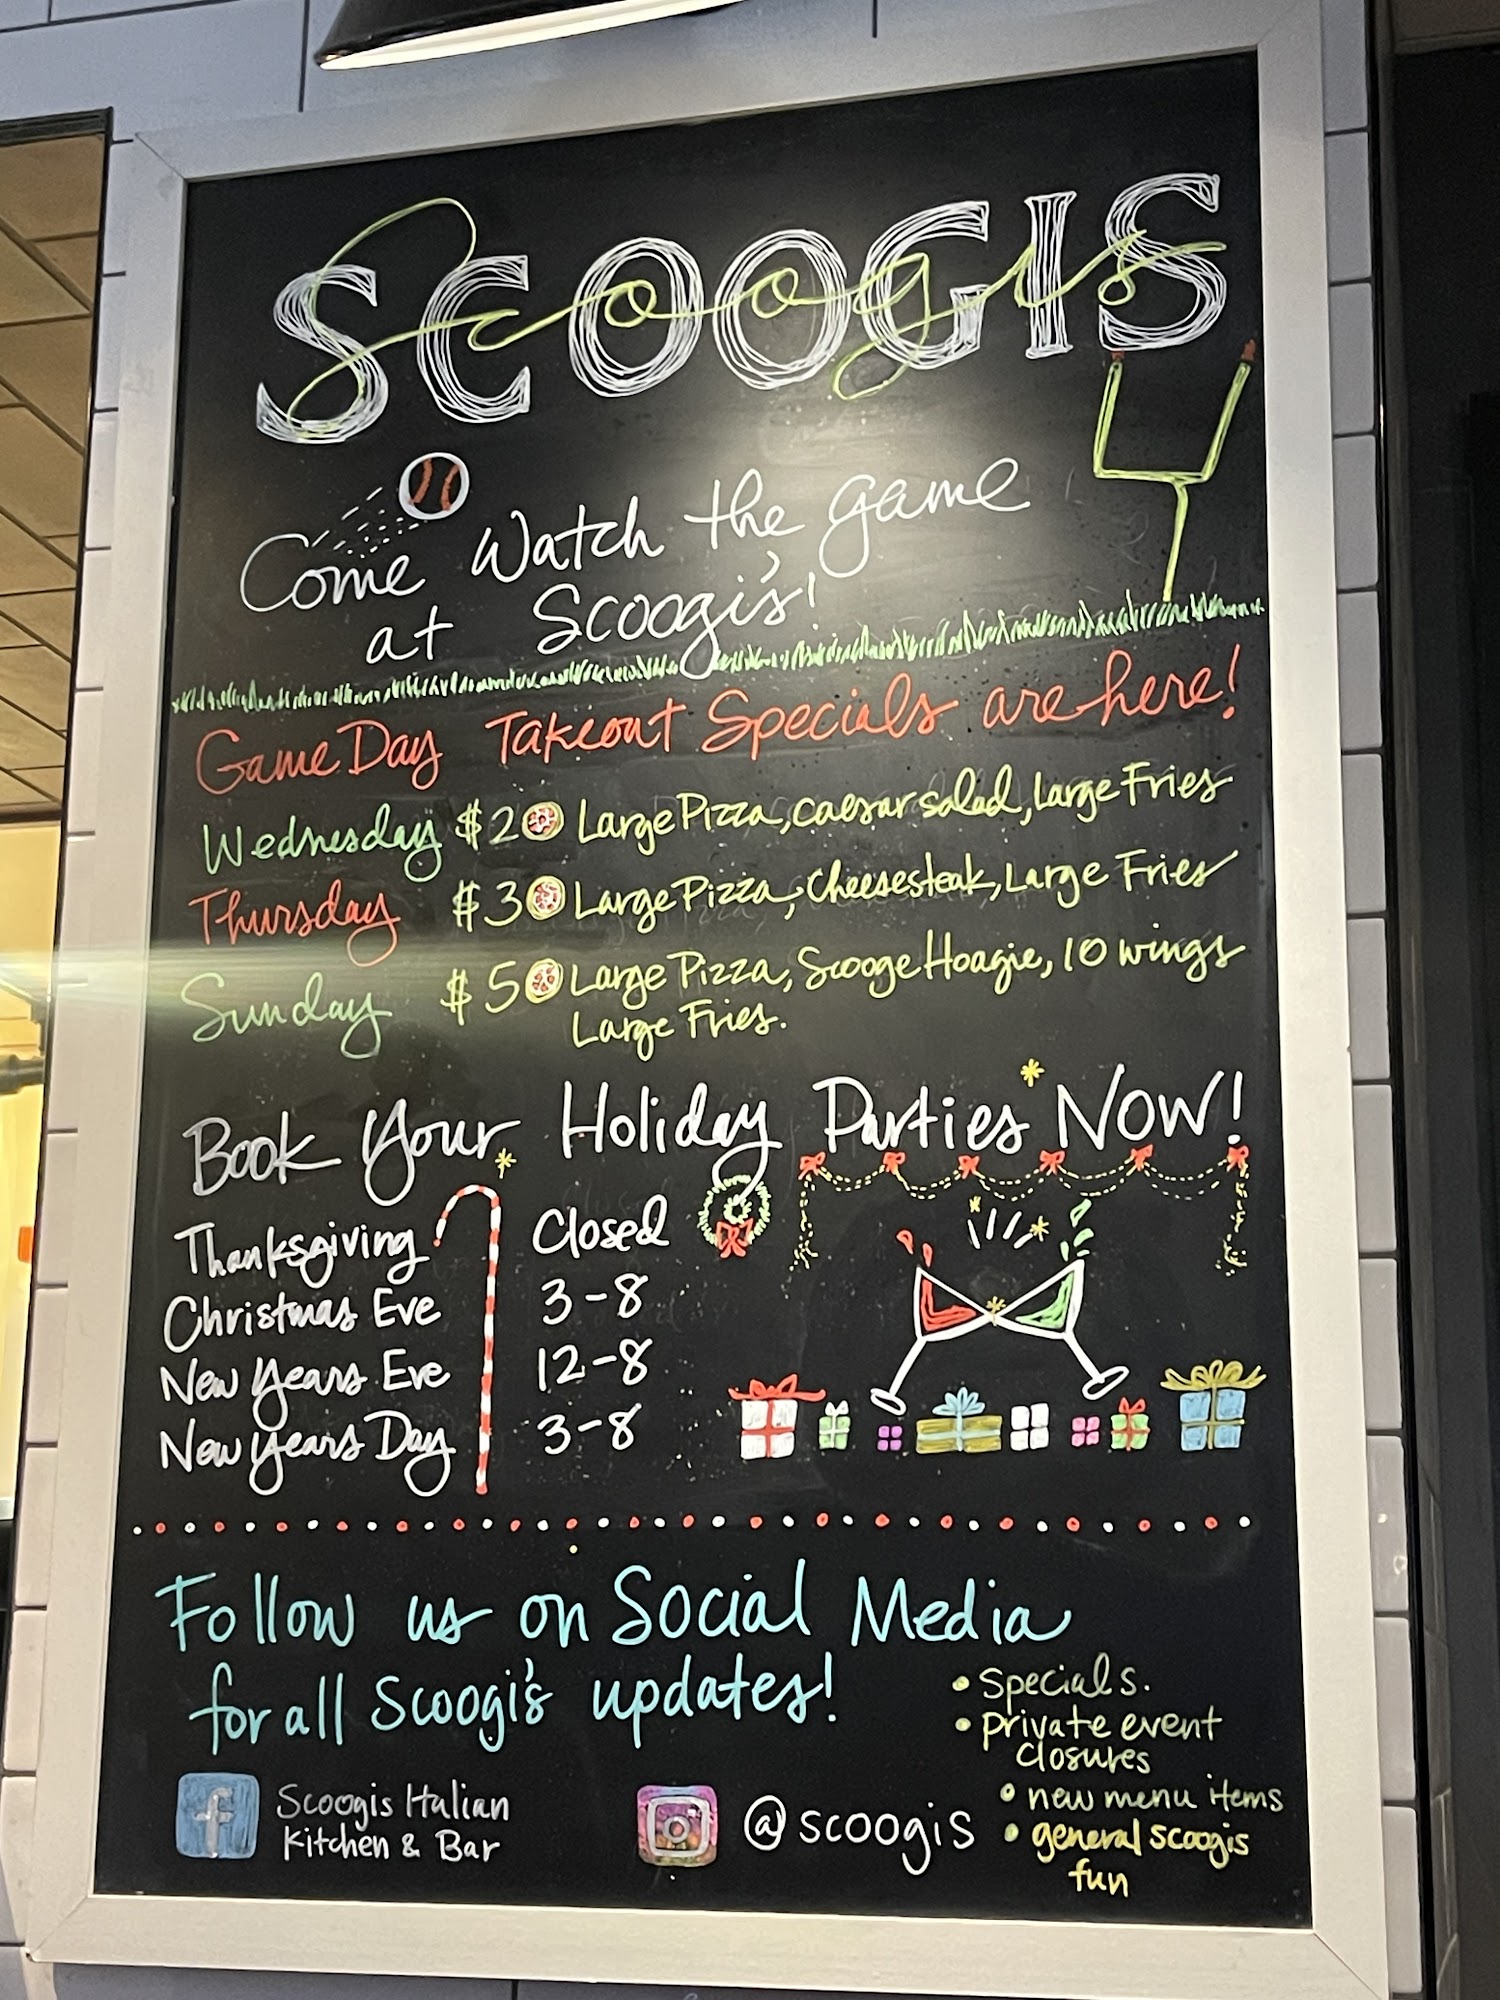 SCOOGIS
Scoogis
Come Watch the game
at Scoogi's!
Game Day Takeout Specials are here!
Wednesday $20 Large Pizza, caesar salad, Large Fries
Thursday $30 Large Pizza, Cheesesteak, Large Fries
Sunday $50 Large Pizza, Scooge Hoagie, 10 wings
Large Fries.
Book Your Holiday Parties NOW!
Thanksgiving Closed
Christmas Eve 3-8
New Years Eve 12-8
New Years Day 3-8
Follow us on Social Media
for all Scoogi's updates!
• Specials.
• private event
closures
• new menu items
• general scoogis
fun
f Scoogis Italian
Kitchen & Bar
@scoogis